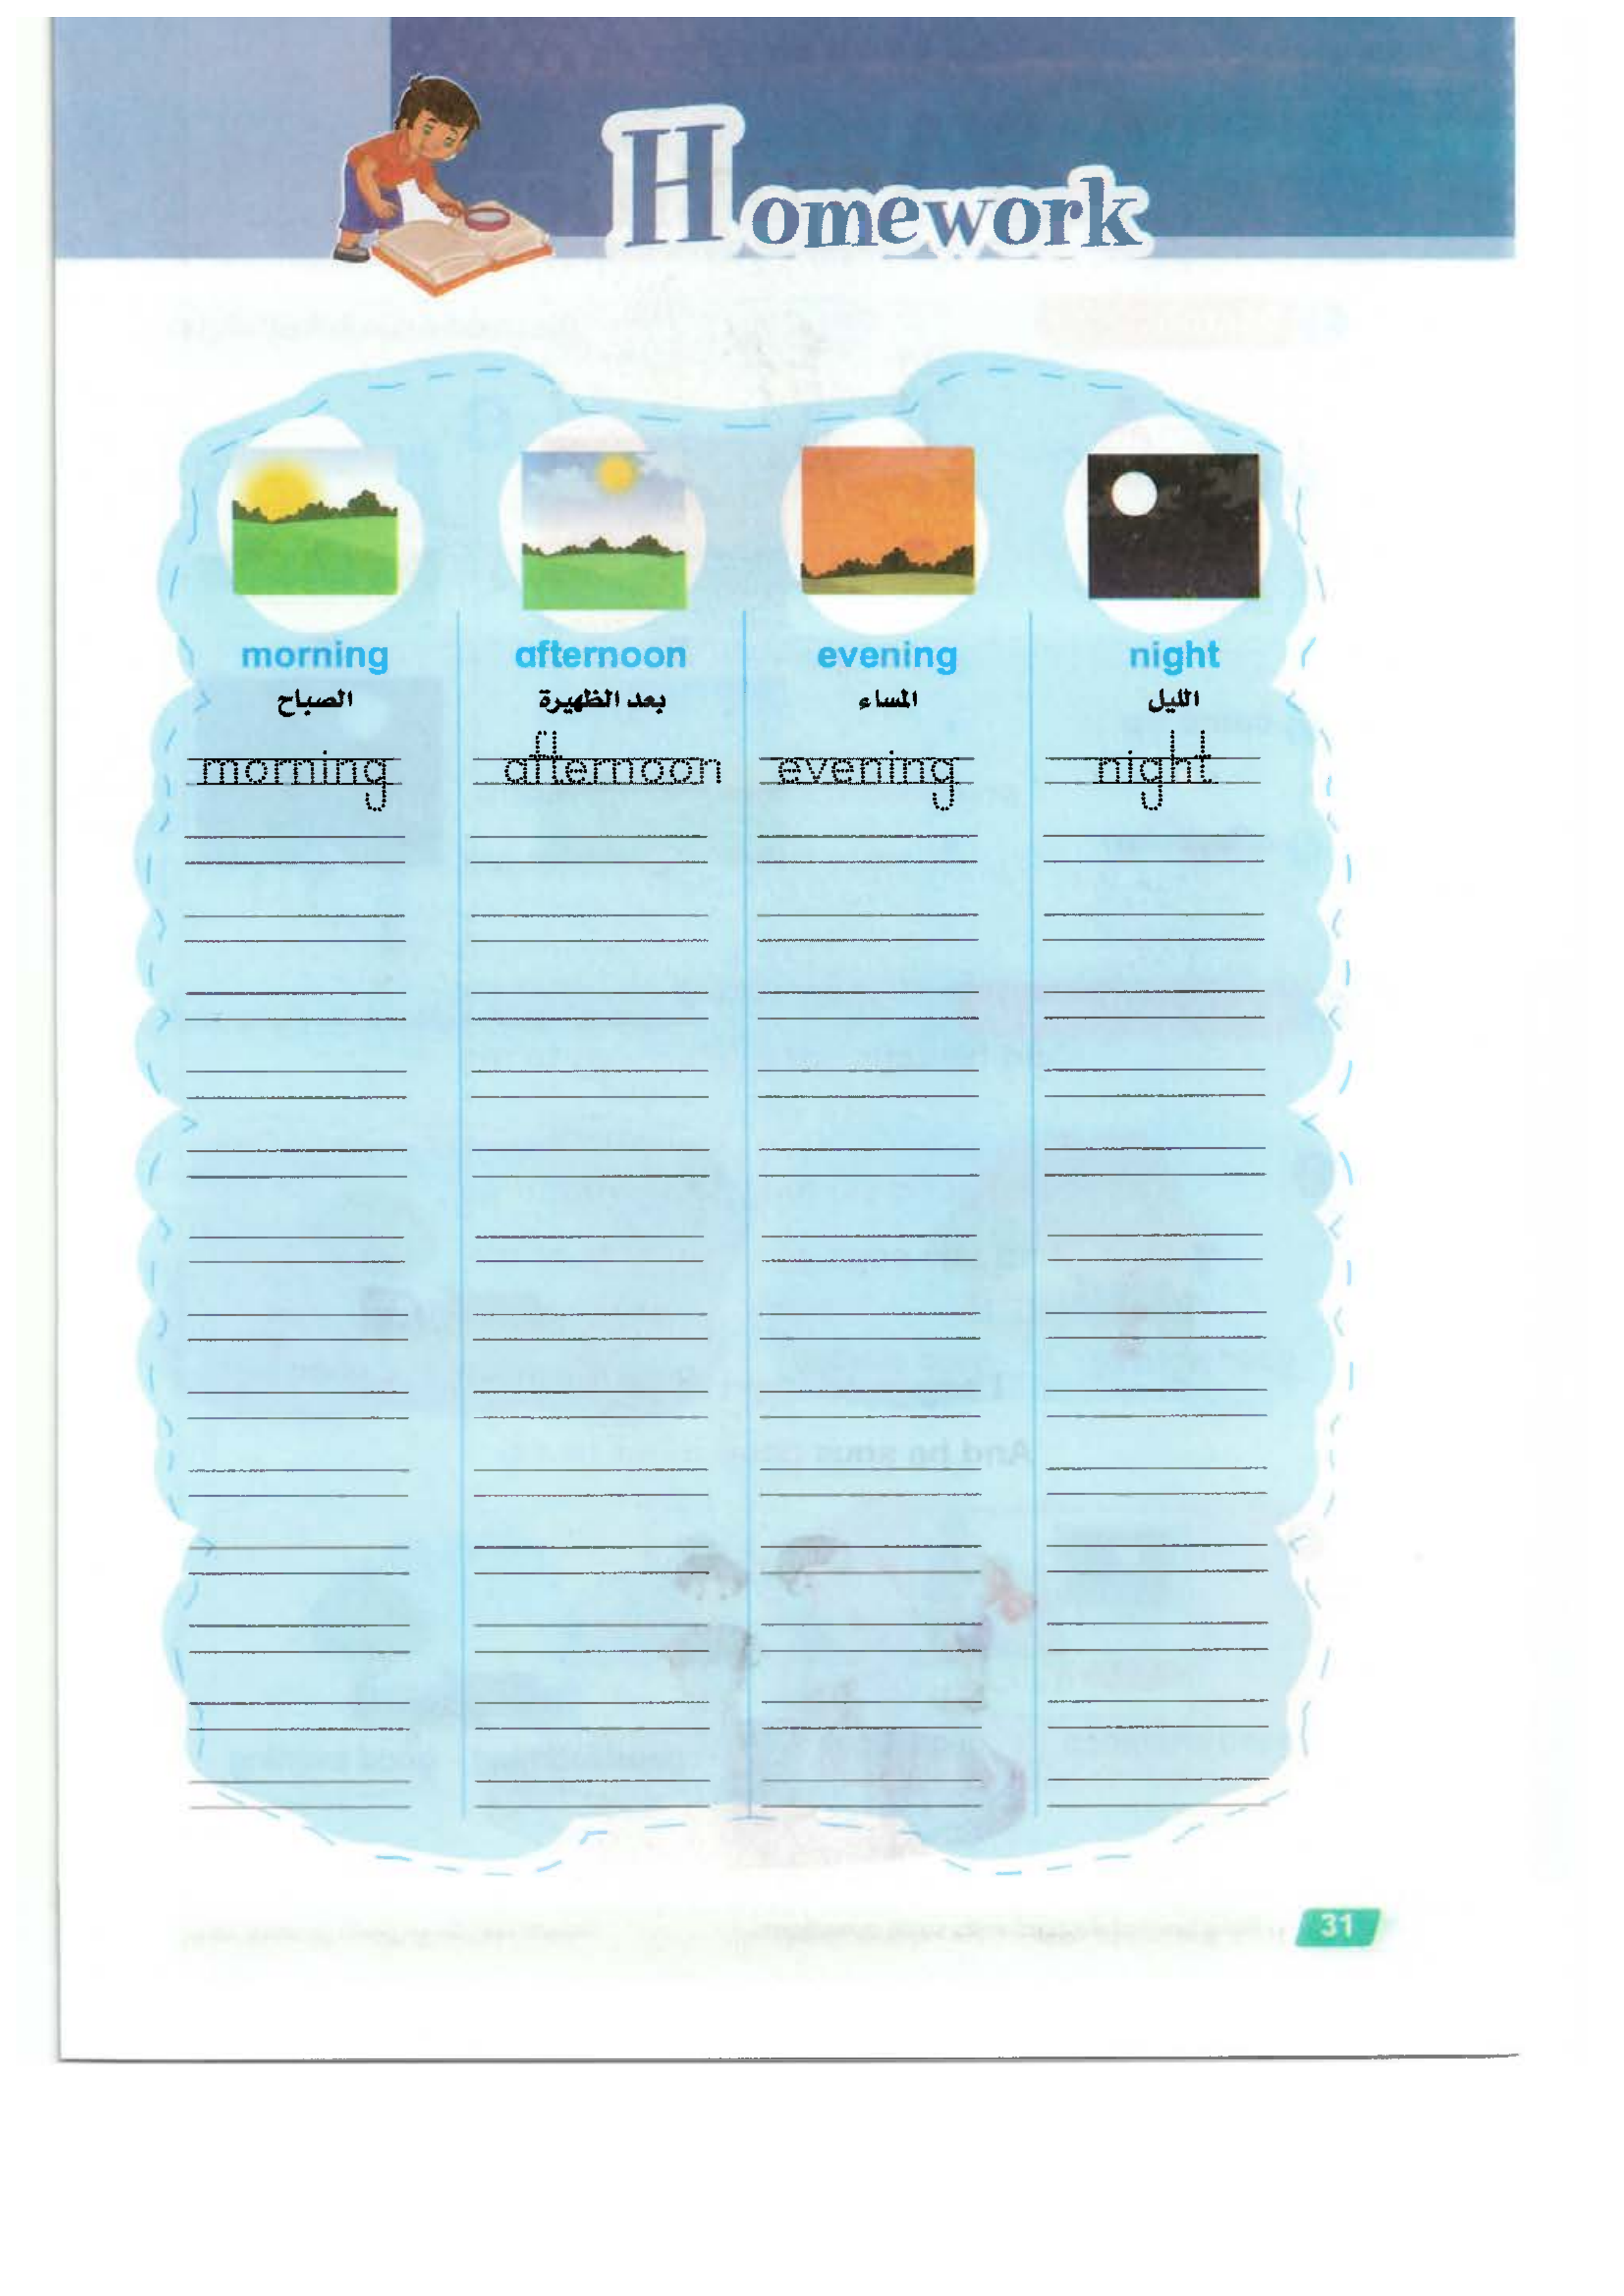 Homework
morning afternoon evening night
الصباح بعد الظهيرة المساء الليل
morning afternoon evening night
31